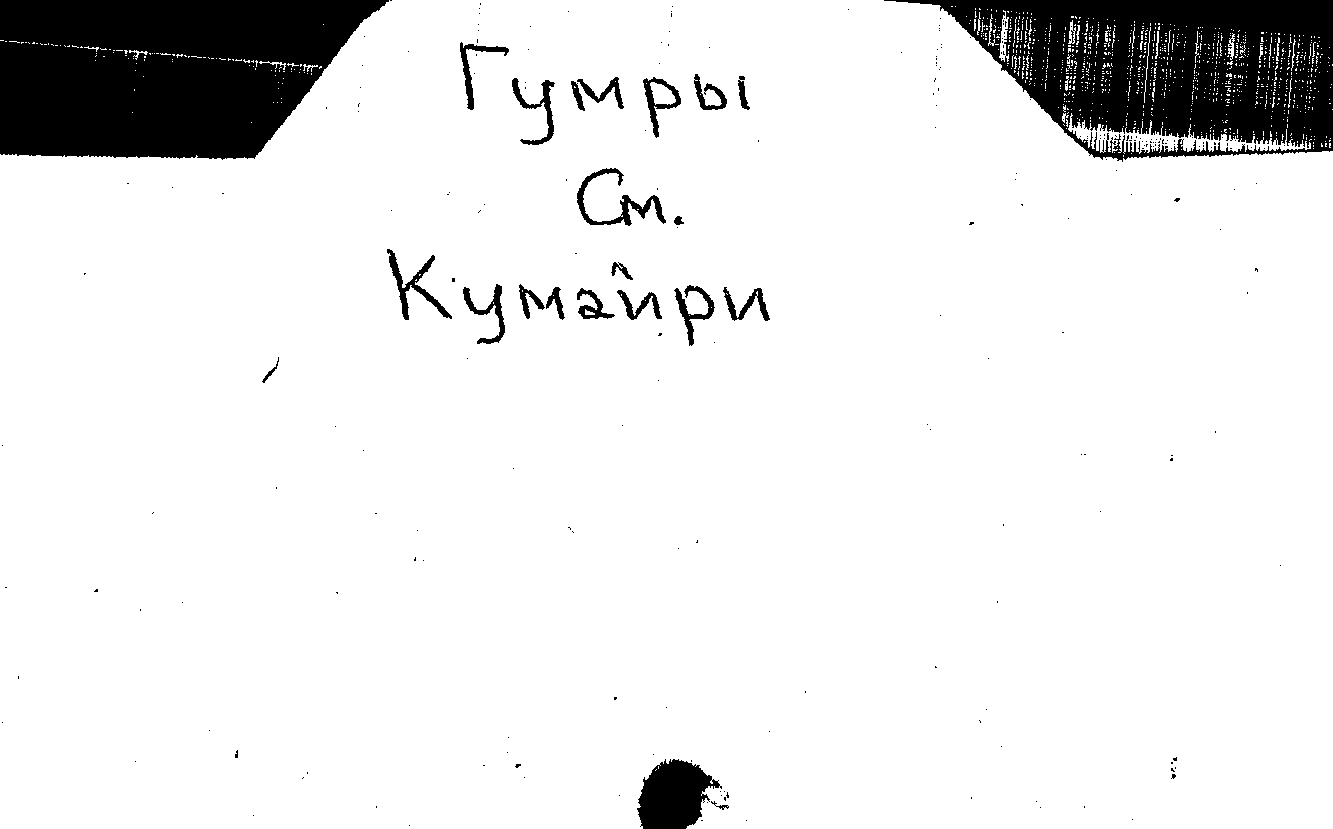 Гумры
См.
Кумайри